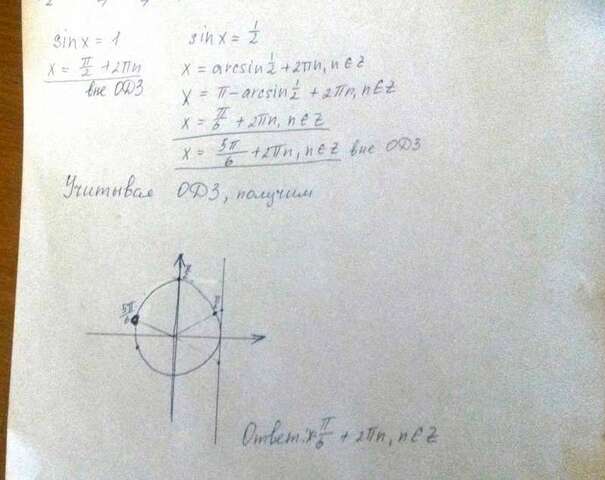 sinx = 1
sinx = 1/2
x = π/2 + 2πn
вне ОДЗ
x = arcsin 1/2 + 2πn, n∈Z
x = π - arcsin 1/2 + 2πn, n∈Z
x = π/6 + 2πn, n∈Z
x = 5π/6 + 2πn, n∈Z вне ОДЗ
Учитывая ОДЗ, получим
π/2
5π/6
Ответ: x π/6 + 2πn, n∈Z